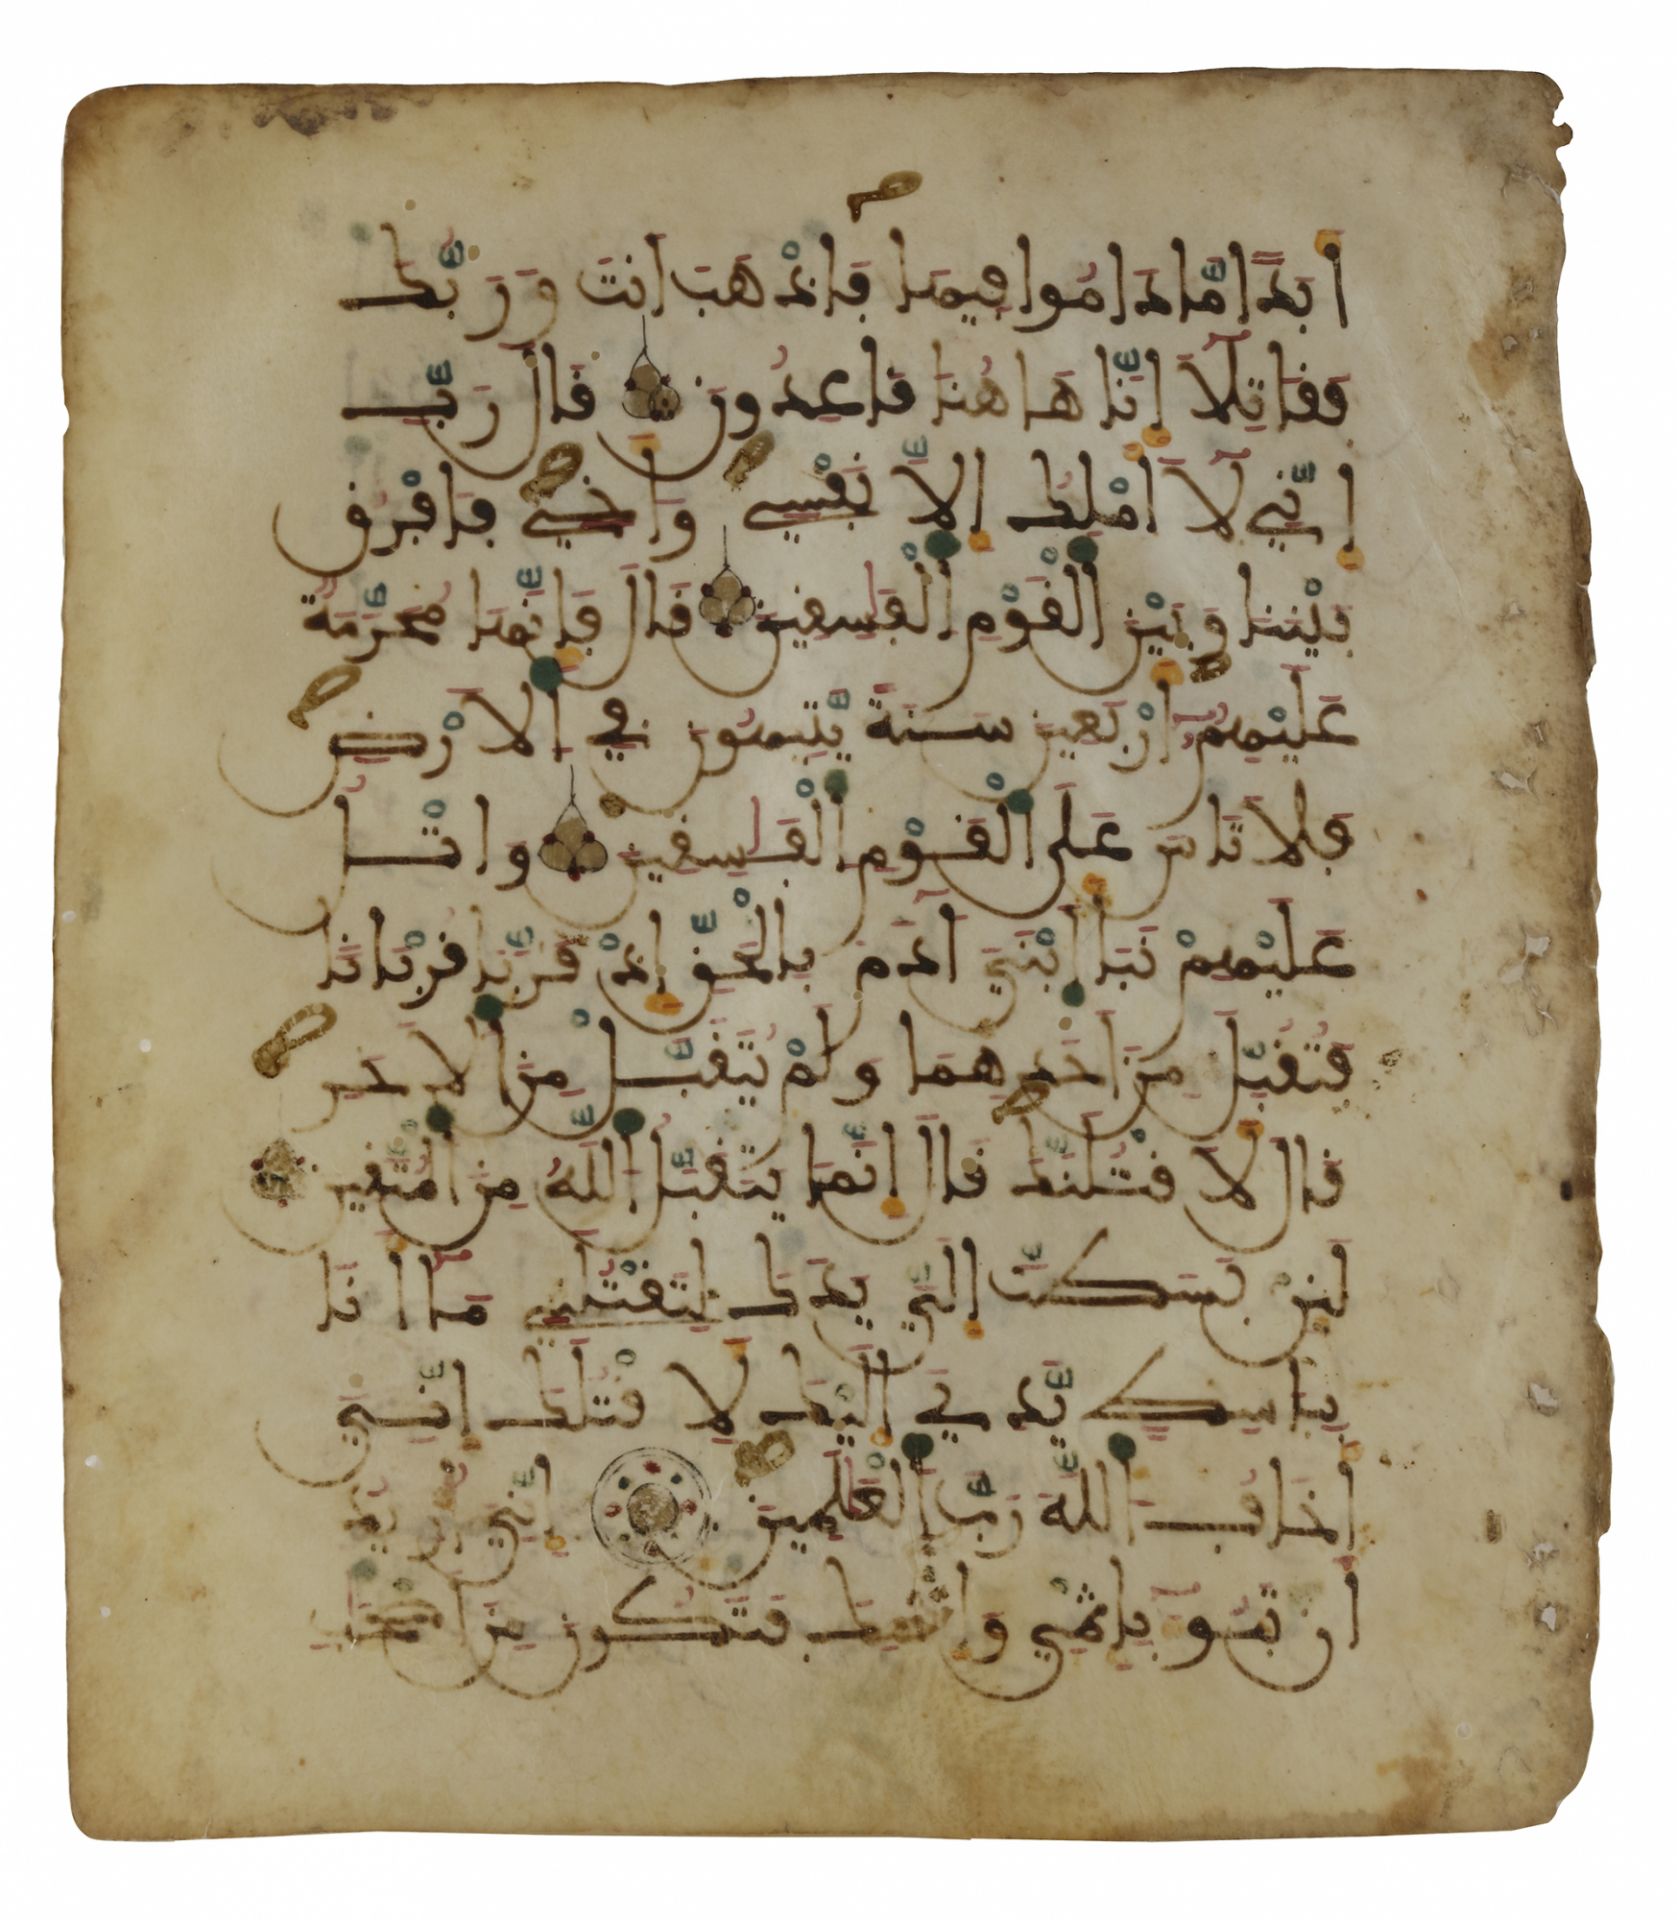 اَبَدًا مَّا دَامُوا فِيهَا فَاذْهَبَ اَنتَ وَرَبُّكَ
فَقَاتِلَآ إِنَّا هَاهُنَا قَاعِدُونَ قَالَ رَبِّ
إِنِّي لَآ أَمْلِكُ إِلَّا نَفْسِي وَأَخِي فَافْرُقْ
بَيْنَنَا وَبَيْنَ الْقَوْمِ الْفَٰسِقِينَ قَالَ فَإِنَّهَا مُحَرَّمَةٌ
عَلَيْهِمُۥٓ أَرْبَعِينَ سَنَةً يَّتِيهُونَ فِي الَارْضِ
فَلَا تَاسَ عَلَى الْقَوْمِ الْفَٰسِقِينَ وَاتْلُ
عَلَيْهِمْ نَبَأَ ابْنَيَ ـ آدَمَ بِالْحَقِّ إِذْ قَرَّبَا قُرْبَانًا
فَتُقُبِّلَ مِنَ اَحَدِهِمَا وَلَمْ يُتَقَبَّلْ مِنَ الَاخَرِ
قَالَ لَأَقْتُلَنَّكَ قَالَ إِنَّمَا يَتَقَبَّلُ اللَّهُ مِنَ الْمُتَّقِينَ
لَئِنْ بَسَطتَ إِلَيَّ يَدَكَ لِتَقْتُلَنِي مَآ أَنَا
بِبَاسِطٍ يَّدِيَ إِلَيْكَ لِأَقْتُلَكَ إِنِّيَ
أَخَافُ اللَّهَ رَبَّ الْعَٰلَمِينَ إِنِّيَ أُرِيدُ
أَن تَبُوٓأَ بِإِثْمِي وَإِثْمِكَ فَتَكُونَ مِنَ اَصْحَٰبِ